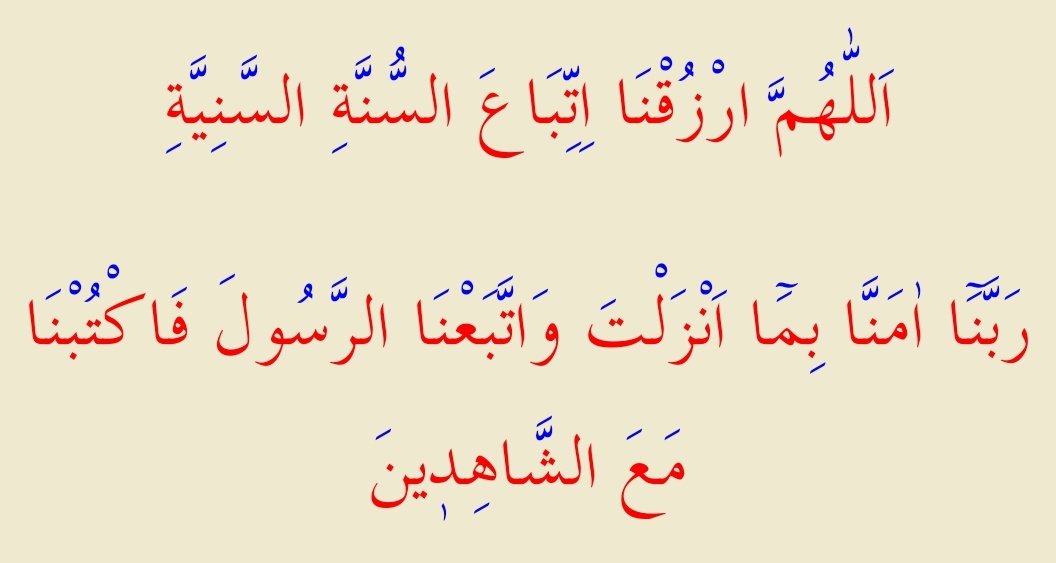 اَللّٰهُمَّ ارْزُقْنَا اِتِّبَاعَ السُّنَّةِ السَّنِيَّةِ
رَبَّنَٓا اٰمَنَّا بِمَٓا اَنْزَلْتَ وَاتَّبَعْنَا الرَّسُولَ فَاكْتُبْنَا
مَعَ الشَّاهِدٖينَ